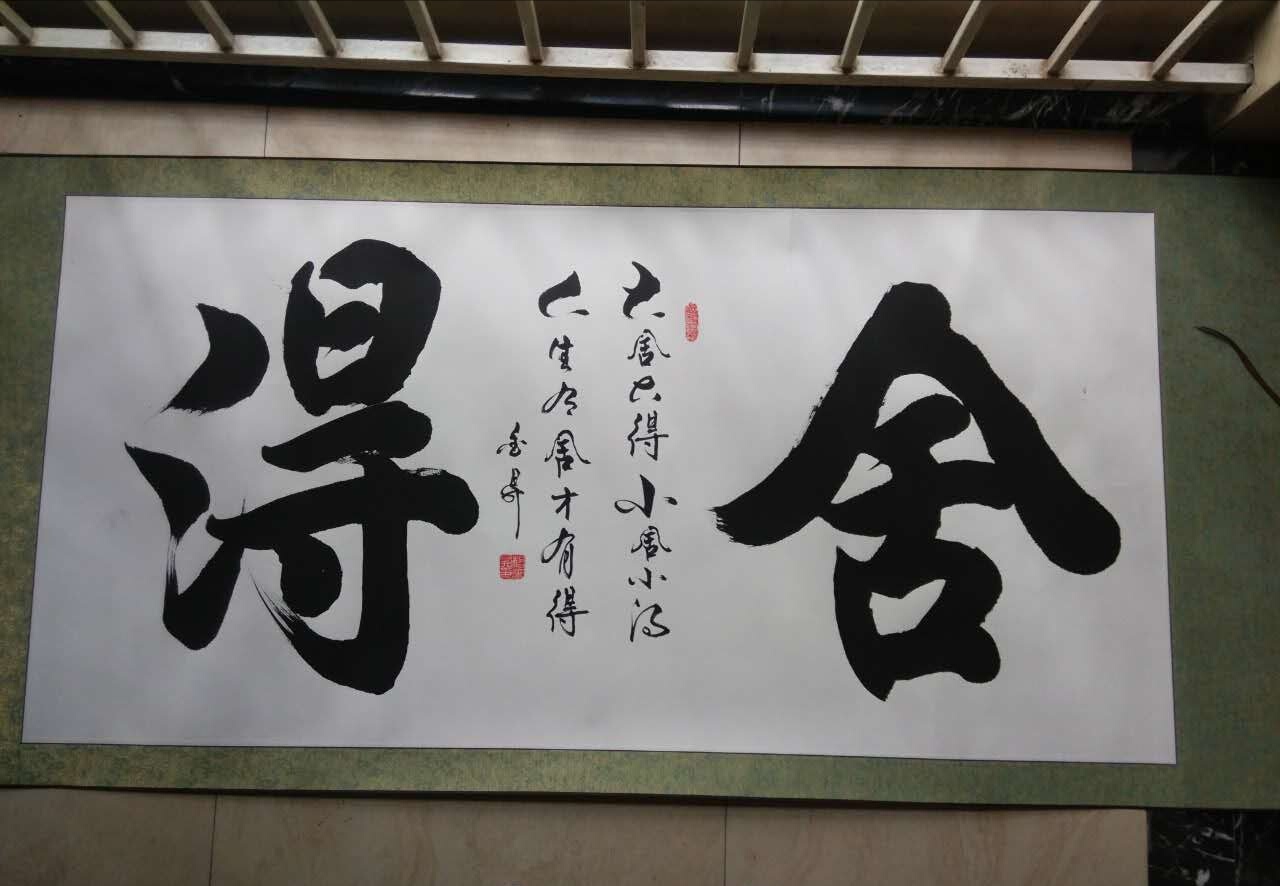 舍
大舍大得小舍小得
人生有舍才有得
得